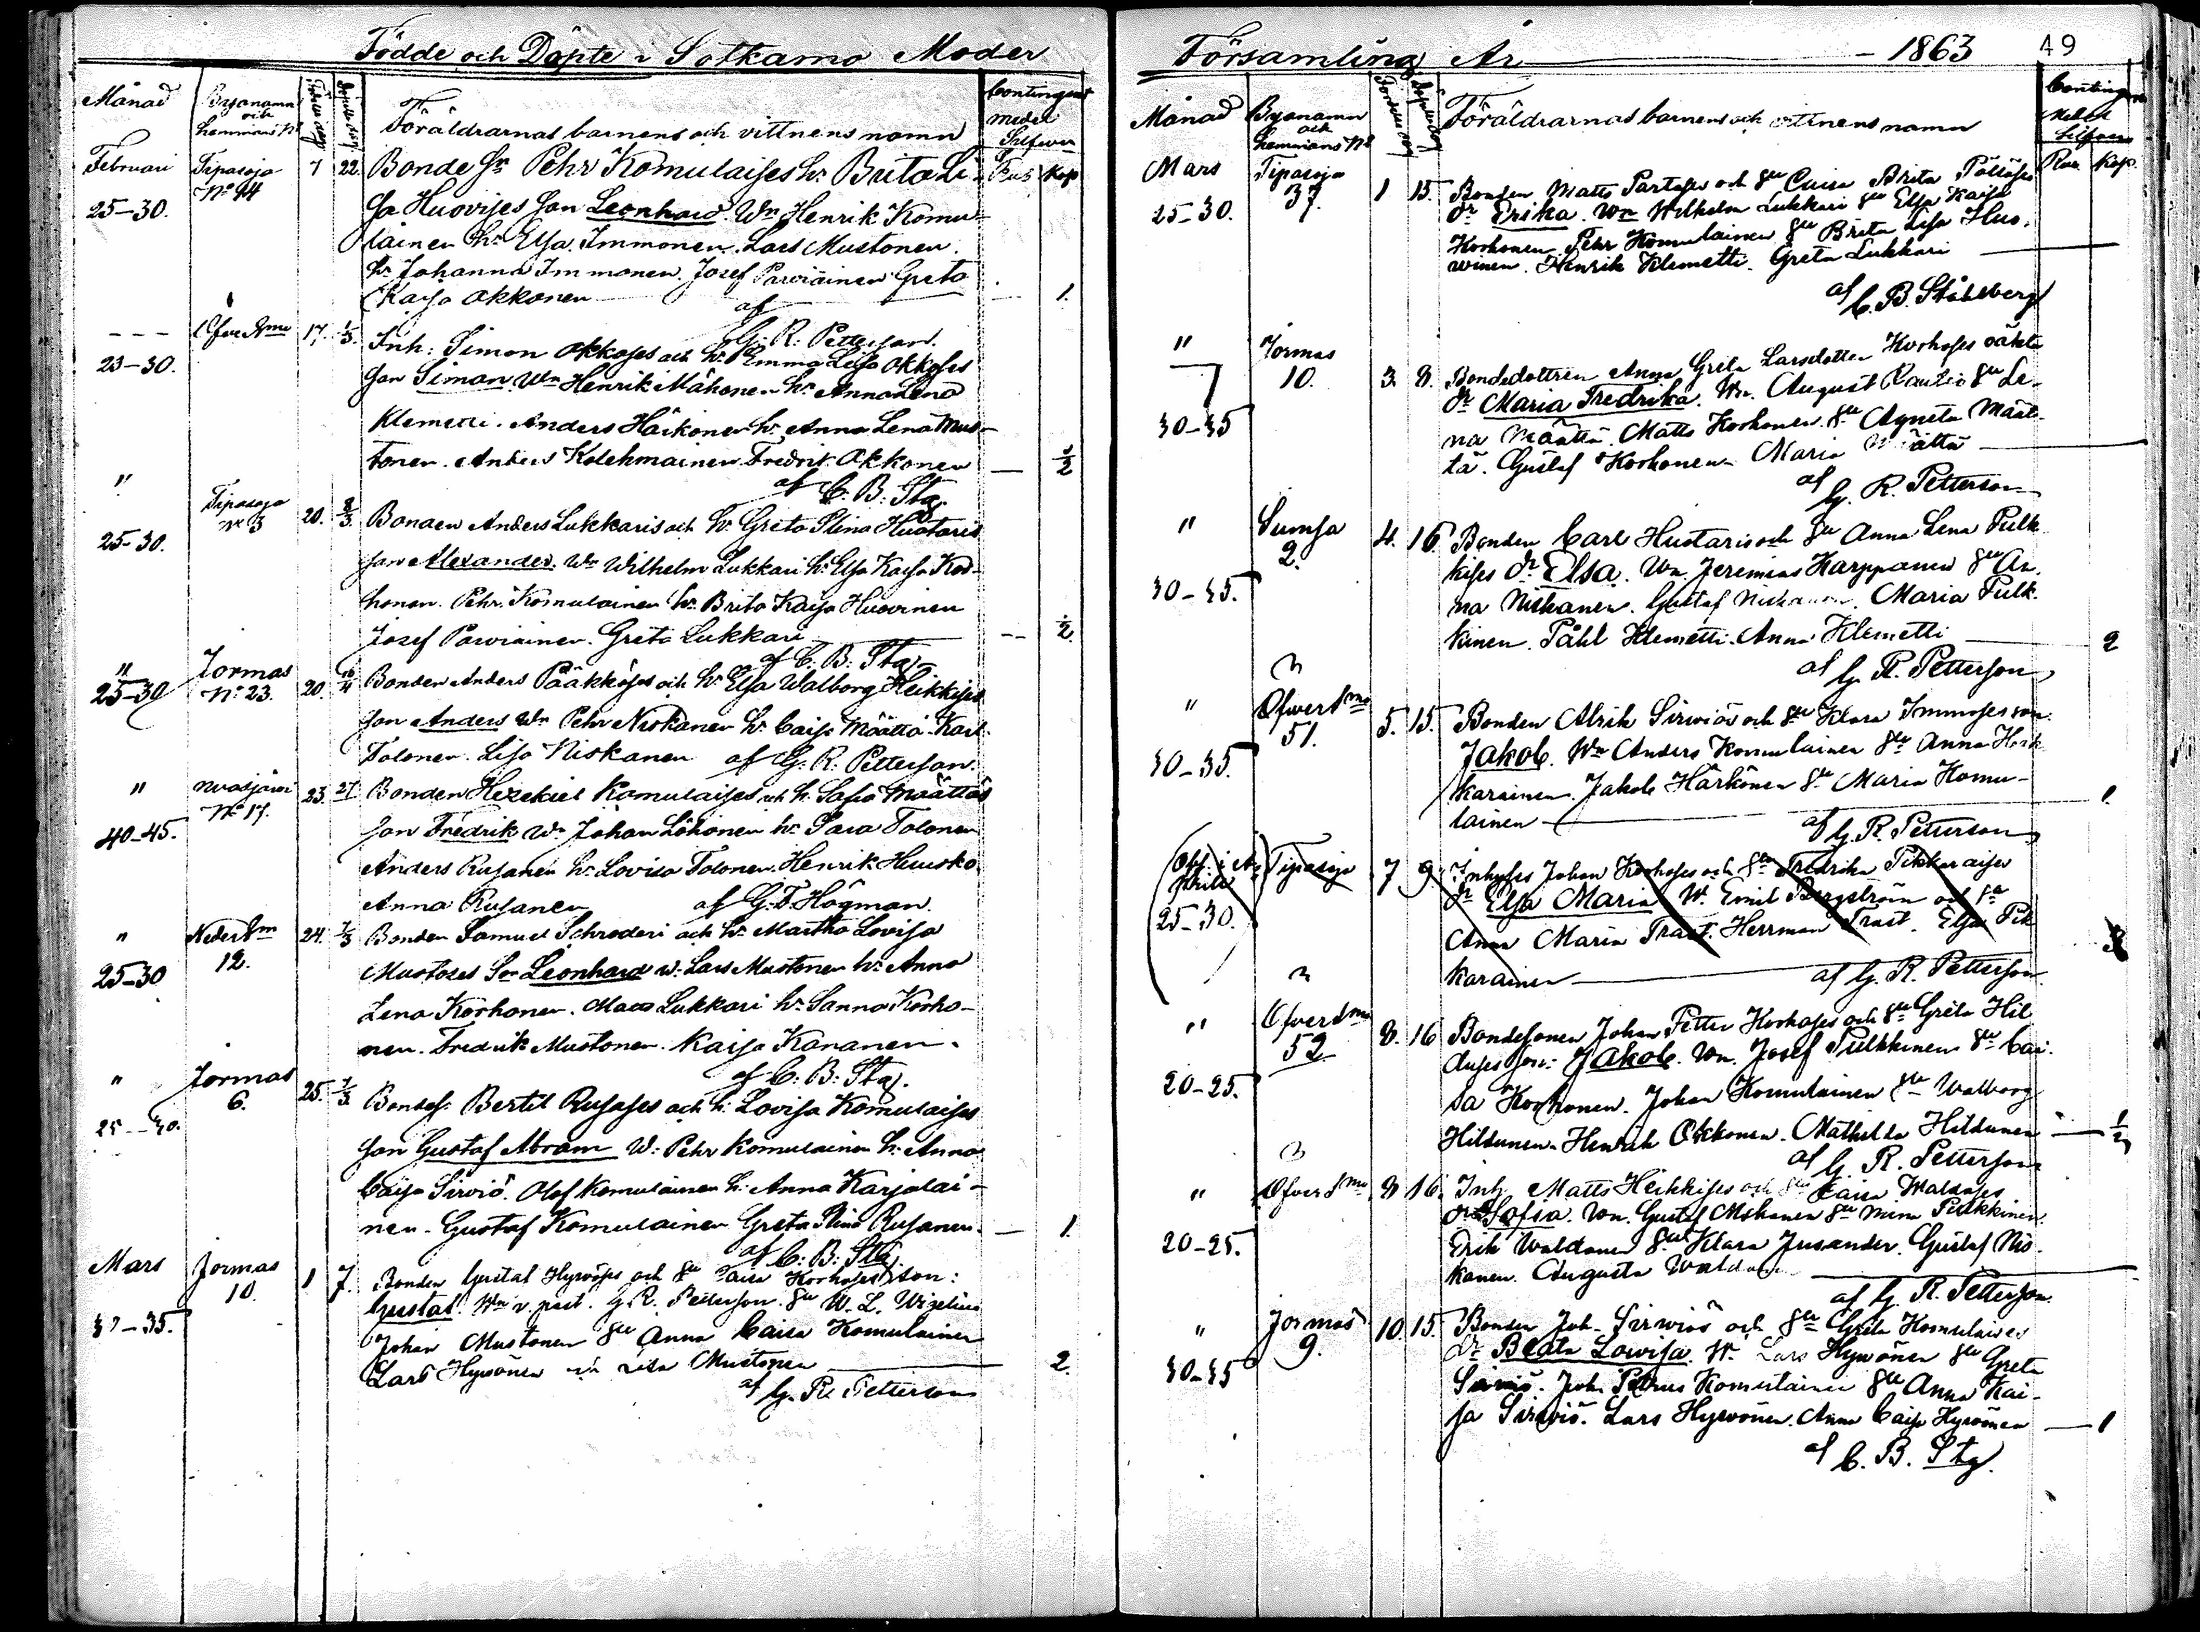 Födde och Döpte i Sotkamo Moder
Månad
Byanamn
och
hemmans No
Föräldrarnas barnens och vittnens namn
Contingent
medel
Silfver
Rub Kop
Februari Tipasoja 7 22
No 44
25-30.
Bonde Sn Pehr Komulaises h. Brita Li-
sa Huovises Son Leonhard. Wn Henrik Komu-
lainen hr Elsa Immonen. Lars Mustonen.
hr Johanna Immonen. Josef Parviainen Greta
Kajsa Okkonen 1.
af
G. R. Petterson.
17. 1/3.
23-30.
Inh: Simon Okkoses och hr Emma Lisa Okkoses
Son Simon Wn Henrik Mähönen hr Anna Lena
Klemetti. Anders Häikönen hr Anna Lena Mus-
tonen. Anders Kolehmainen Fredrik Okkonen 1/2
af C. B. Stg.
" Tipasoja
No 3
20. 8/3
25-30.
Bonden Anders Lukkaris och hr Greta Stina Huotaris
Son Alexander. Wn Wilhelm Lukkari hr Elsa Kajsa Kor-
honen. Pehr Komulainen hr Brita Kajsa Huovinen
Josef Parviainen. Greta Lukkari 1/2
af C. B. Stg
" Jormas
25-30 No 23. 20
Bonden Anders Pääkköses och hr Elsa Walborg Heikkises
Son Anders Wn Pehr Niskanen hr Caisa Määttä. Karl
Tolonen. Lisa Niskanen af G. R. Petterson.
" No 17. 23. 27
40-45.
Bonden Hezekiel Komulaises och h. Sofia Määttäs
Son Fredrik Wn Johan Löhönen hr Sara Tolonen
Anders Rusanen hr Lovisa Tolonen. Henrik Huusko.
Anna Rusanen af G. F. Högman.
" Neder Sm 24. 1/3
12.
25-30
Bonden Samuel Schroderi och hr Martha Lovisa
Mustoses Son Leonhard w. Lars Mustonen hr Anna
Lena Korhonen. Matts Lukkari hr Sanna Korho-
nen. Fredrik Mustonen. Kajsa Kananen.
af C. B. Stg.
" Jormas
6.
25. 1/3
25-30.
Bondes. Bertil Rusases och h. Lovisa Komulaises
Son Gustaf Abram W. Pehr Komulainen h. Anna
Caisa Sirviö. Olof Komulainen h. Anna Karjalai-
nen. Gustaf Komulainen Greta Stina Rusanen. 1.
af C. B. Stg.
Mars Jormas
10
1 7.
30-35.
Bonden Gustaf Hyvöses och hu Caisa Korhoses son:
Gustaf. Wn v. past. G. R. Petterson hu W. L. Wigelius
Johan Mustonen hu Anna Caisa Komulainen
Lars Hyvönen och Lisa Mustonen 2.
af G. R. Petterson
Församling År 1863 49
Månad
Byanamn
och
hemmans No
Föräldrarnas barnens och vittnens namn
Contingent
Medel
Silfver
Rub Kop.
Mars Tipasoja
37.
1 15.
25-30.
Bonden Matts Partases och hu Caisa Brita Pölläses
dr Erika. Wn Wilhelm Lukkari hu Elsa Kaisa
Korhonen. Pehr Komulainen hu Brita Lisa Huo-
winen. Henrik Klemetti. Greta Lukkari
af
C. B. Ståhlberg
" Jormas
10.
3. 8.
30-35
Bondedottren Anna Greta Larsdotter Korhoses oäkta
dr Maria Fredrika. Wn. August Rautio hu Le-
na Määttä. Matts Korhonen hu Agneta Määt-
tä. Gustaf Korhonen. Maria Määttä
af
G. R. Petterson
" Sumsa
2.
4. 16.
30-35.
Bonden Carl Huotaris och hu Anna Lena Pulk-
kises dr Elsa. Wn Jeremias Karppanen hu An-
na Niskanen. Gustaf Niskanen. Maria Pulk-
kinen. Påhl Klemetti. Anna Klemetti 2
af G. R. Petterson
" Öfver Sm
51.
5. 15.
30-35.
Bonden Alrik Sirviös och hu Klara Immoses son.
Jakob. Wn Anders Komulainen hu Anna Hork-
karainen. Jakob Härkönen hu Maria Komu-
lainen 1.
af G. R. Petterson
Tipasoja 7 9
25-30.
Inhyses Johan Korhoses och hu Fredrika Pikkaraises
dr Elsa Maria W. Emil Bergström och hu
Anna Maria Trast. Herrman Trast. Elsa Pik-
karainen af G. R. Petterson
" Öfver Sm
52
8. 16
20-25.
Bondesonen Johan Petter Korhoses och hu Greta Hil-
duses son: Jakob. Wn. Josef Pulkkinen hu Cai-
sa Korhonen. Johan Komulainen hu Walborg
Hildunen. Henrik Okkonen. Mathilda Hildunen 1/2
af G. R. Petterson
" Öfver Sm 8 16.
20-25.
Inh. Matts Heikkises och hu Caisa Waldases
dr Sofia. Wn. Gustaf Mokanen hu Mina Pulkkinen.
Erik Waldanen hu Klara Jusander. Gustaf Nis-
kanen. Augusta
af G. R. Petterson.
" Jormas
9.
10. 15.
30-35
Bonden Joh. Sirviös och hu Greta Komulaises
dr Beata Lowisa. W. Lars Hyvönen hu Greta
Sirviö. Joh. Petrus Komulainen hu Anna Kai-
sa Sirviö. Lars Hyvönen. Anna Caisa Hyvönen 1
af
C. B. Stg.